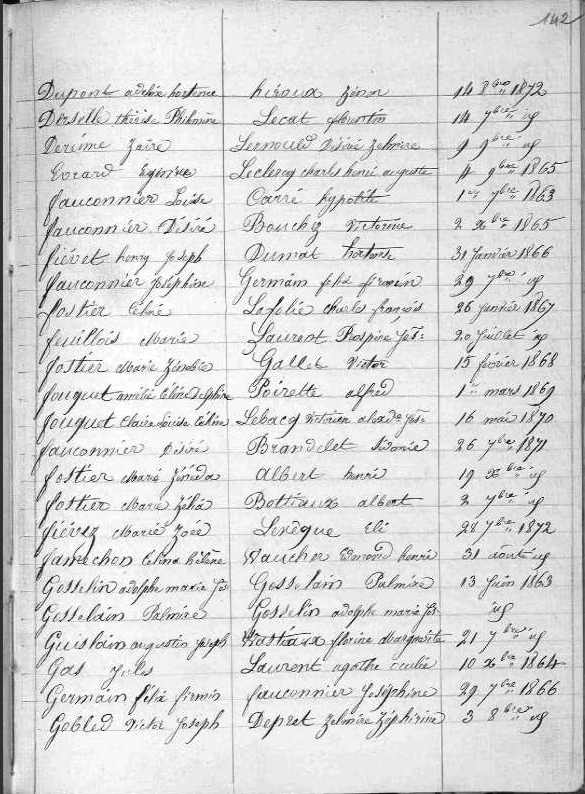 142
Dupont adeline hortense hiroux Zénon 14 8bre 1872
Derselle thérèse Philomène Lecat florentin 14 7bre id
Derême Zaïre Lernould Désiré Zelmire 9 9bre id
Evrard Leclercq charles henri auguste 4 9bre 1865
fauconnier Louise Carré hypolite 1er 7bre 1863
fauconnier Désiré Bouchez Victorine 2 Xbre 1865
fiévet henry Joseph Dumat hortense 31 Janvier 1866
fauconnier Joséphine Germain felix firmin 29 7bre id
fostier Celine Lafolie charles françois 26 Janvier 1867
feuillois Marie Laurent Prospère Jh: 20 Juillet id
fostier Marie Zénobie Gallet Victor 15 février 1868
fouquet amélie Céline Delphine Poirette alfred 1er mars 1869
fouquet Claire Louise Céline Lebacq Victorien alexdre Jh: 16 mai 1870
fauconnier Désiré Brandelet Sidonie 26 7bre 1871
fostier Marie Zénéida albert henri 19 Xbre id
fostier Marie Zélia Bottiaux albert 2 7bre id
fiévez Marie Zoée Levêque Eli 28 7bre 1872
famechon Celina hélène Vaucher Edmond henri 31 août id
Gosselin adolphe marie Jh Gosselain Palmire 13 Juin 1863
Gosselain Palmire Gosselin adolphe marie Jh id
Guislain augustin Joseph Wastiaux florine Marguerite 21 7bre id
Gas Jules Laurent agathe 10 Xbre 1864
Germain félix firmin fauconnier Joséphine 29 7bre 1866
Gobled Victor Joseph Depret Zelmire Zéphirine 3 8bre id